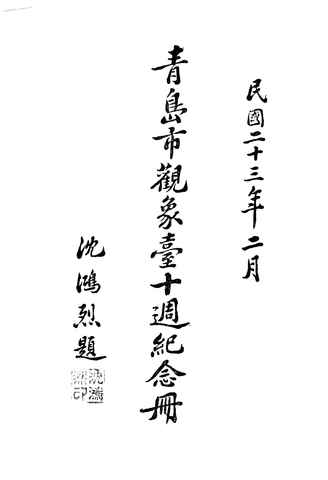 民國二十三年二月
青島市觀象臺十週紀念冊
沈鴻烈題
沈鴻烈印